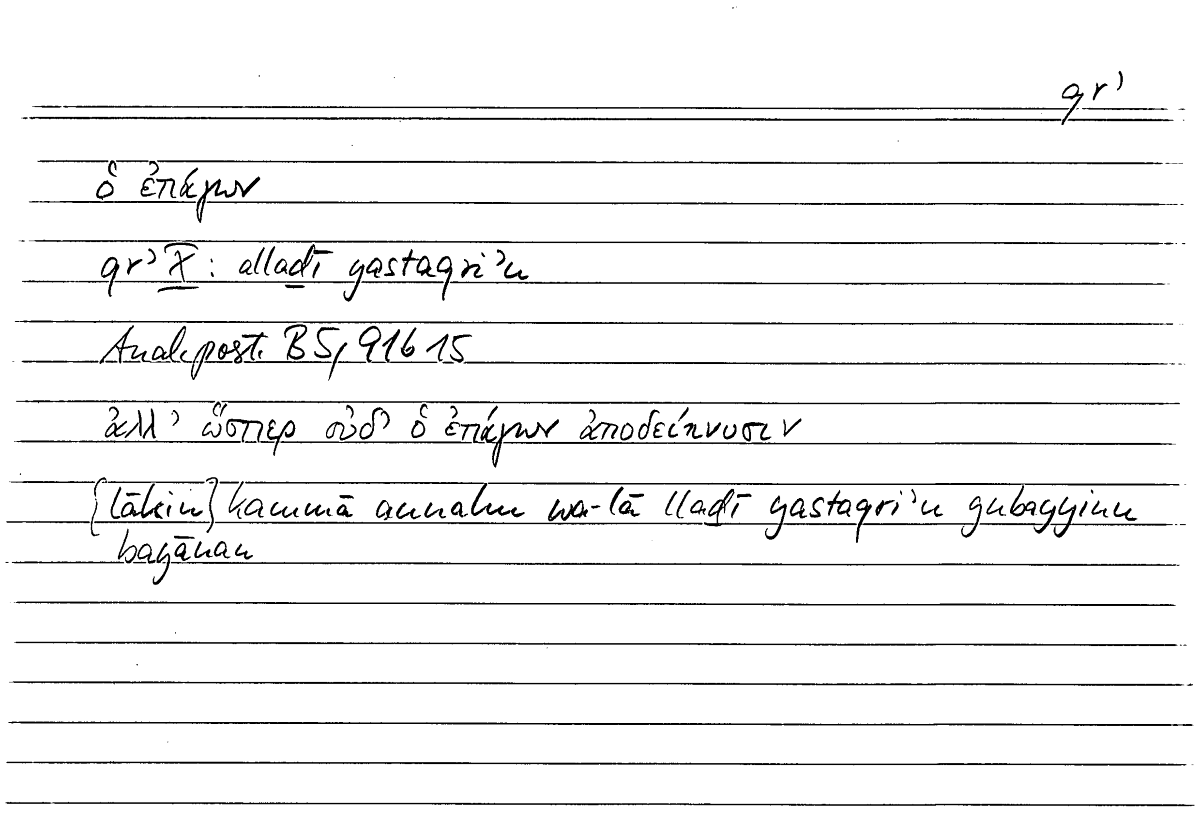 qrʾ
ὁ ἐπάγων
qrʾ X̅: allaḏī yastaqriʾu
Anal. post. B5, 91b15
ἀλλʾ ὥσπερ οὐδʾ ὁ ἐπάγων ἀποδείκνυσιν
{lākin} kammā annahu wa-lā llaḏī yastaqriʾu yubayyinu
bayānan